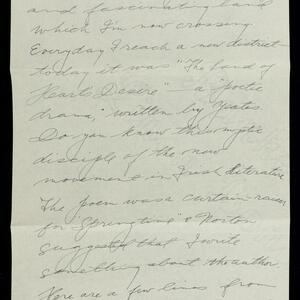 and fascinating land
which I'm now crossing
Everyday I reach a new district-
today it was "The Land of
Heart's Desire" - a "poetic
drama," written by Yeats.
Do you know this mystic
disciple of the new
movement in Irish literature
The poem was a curtain-raiser
for "Springtime" & Norton
suggested that I write
something about the author
Here are a few lines from